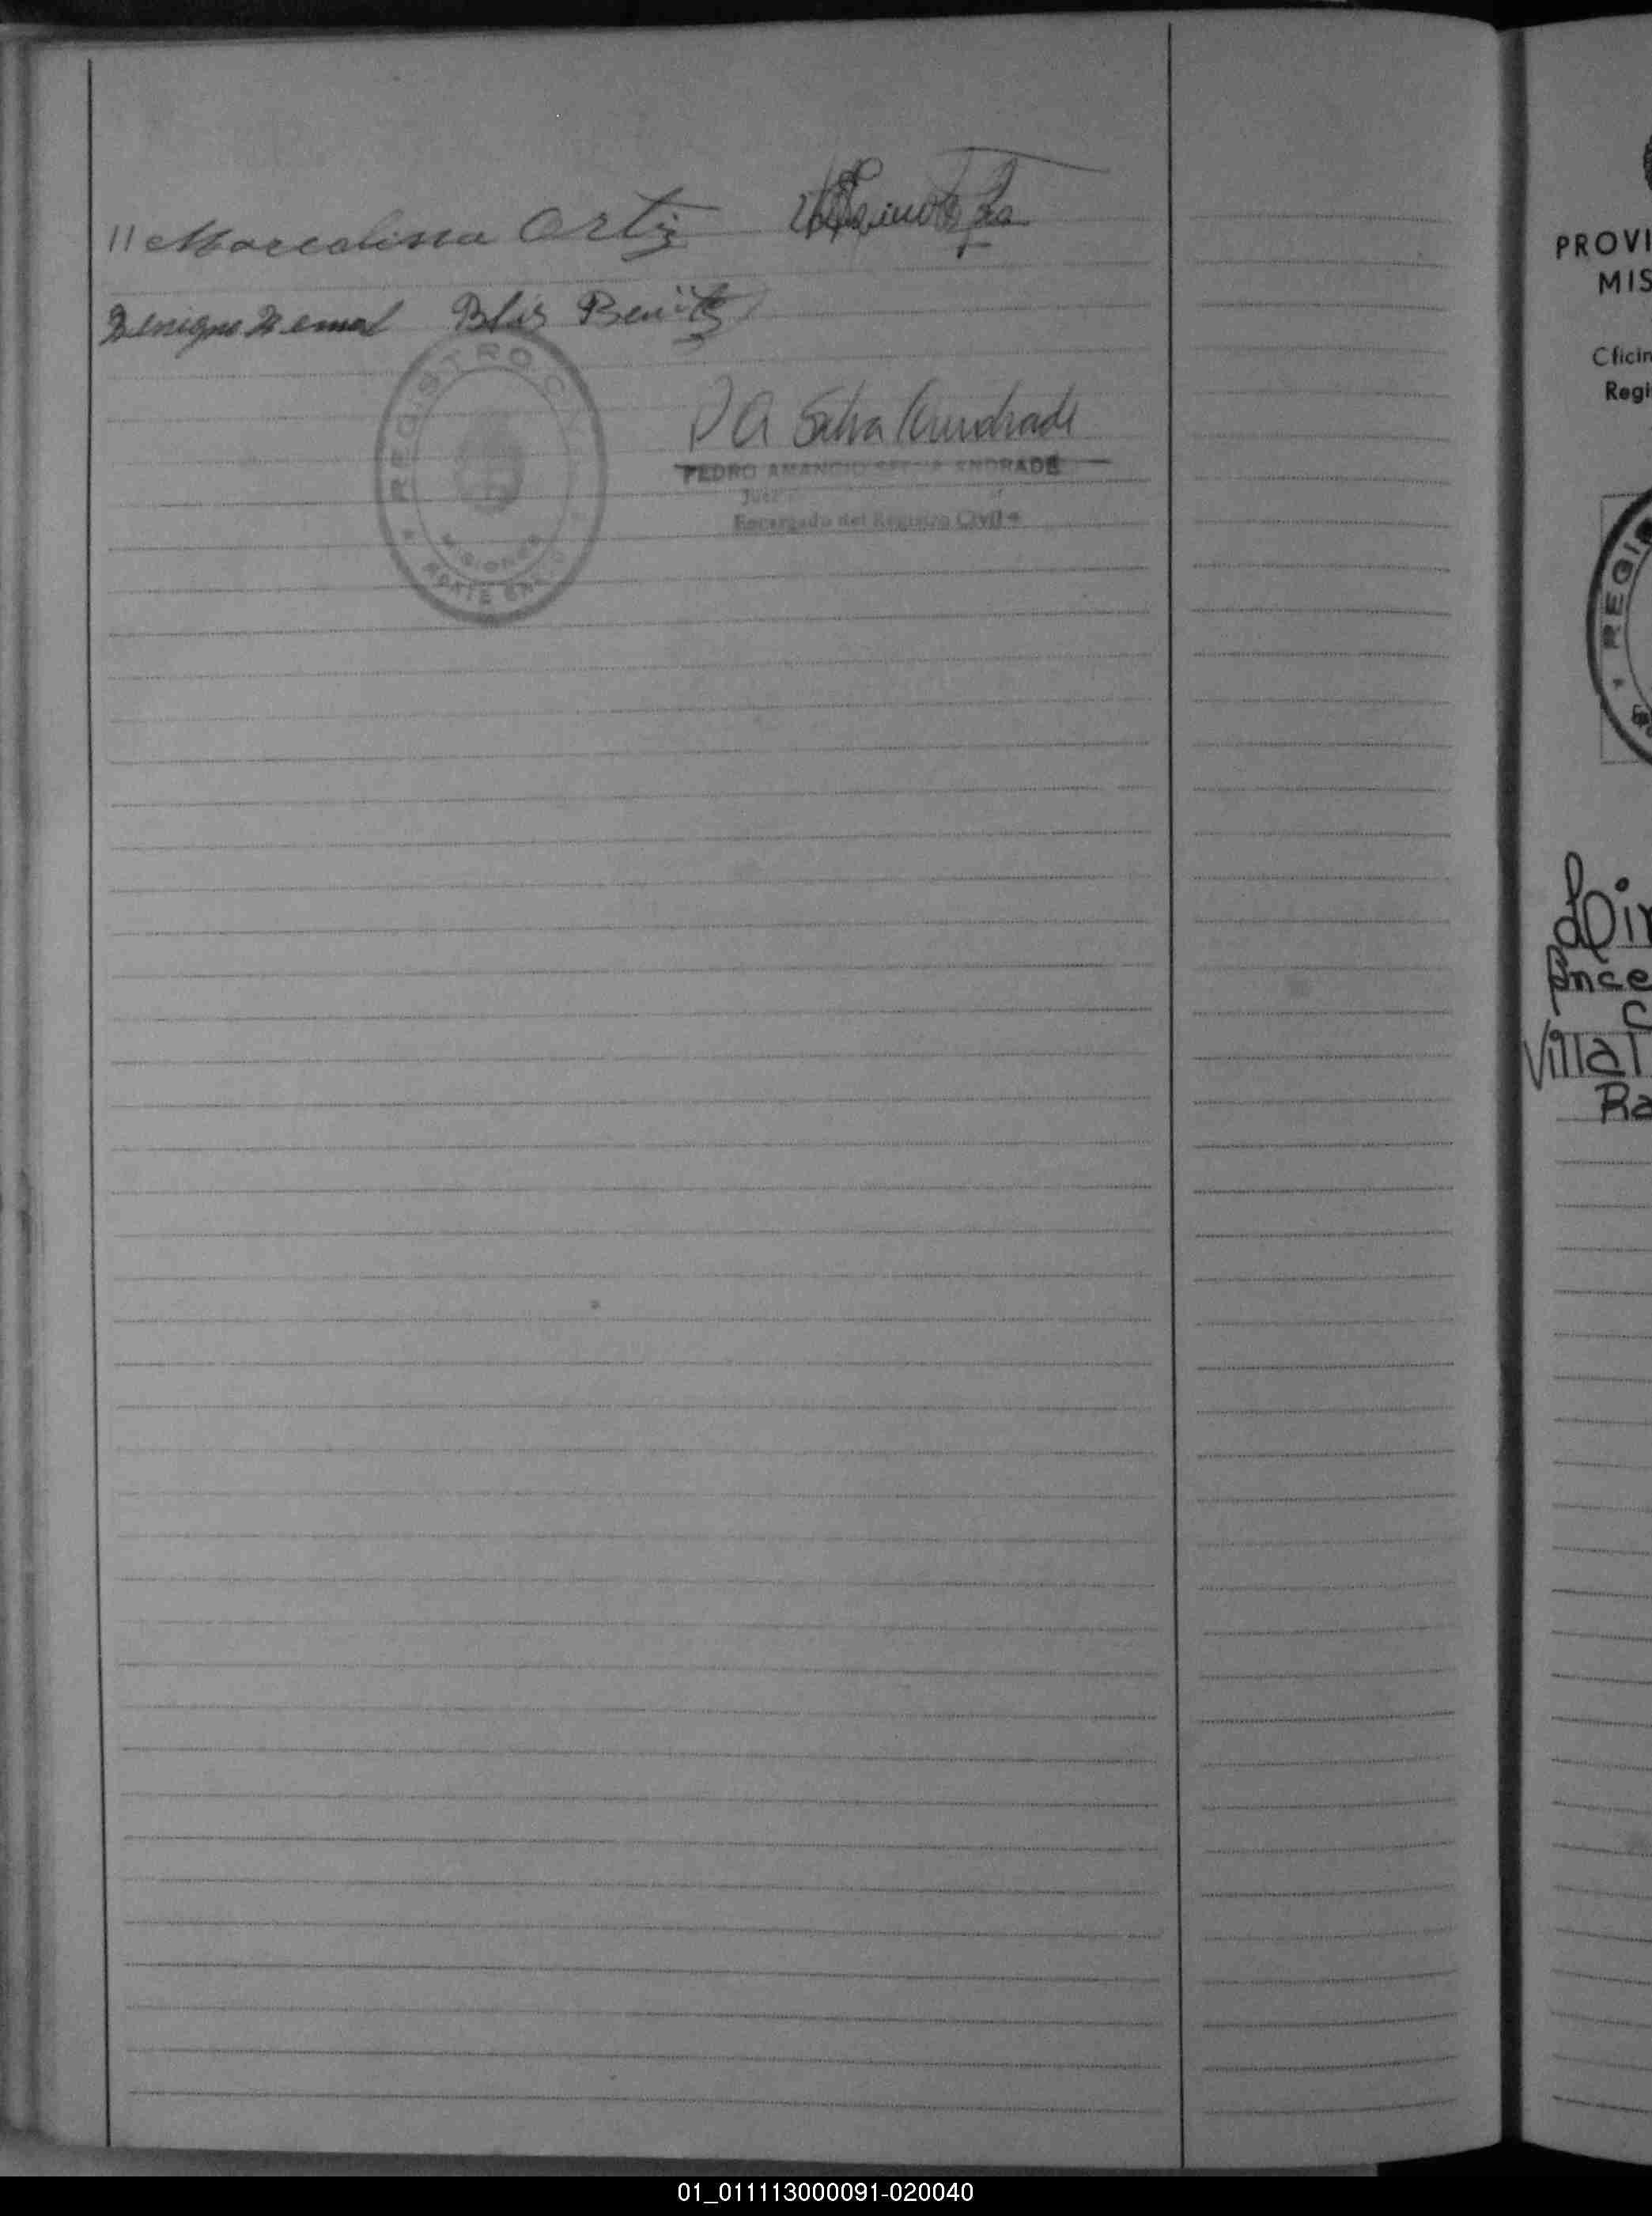 11 Marcelina Ortiz
Benigno Bernal Blas Benitez
REGISTRO CIVIL
MISIONES
P A Silva Andrade
PEDRO AMANCIO SILVA ANDRADE
Juez
Encargado del Registro Civil
PROVI
MIS
Oficin
Regi
REGIS
Ance
C
Villal
Ra
01_011113000091-020040